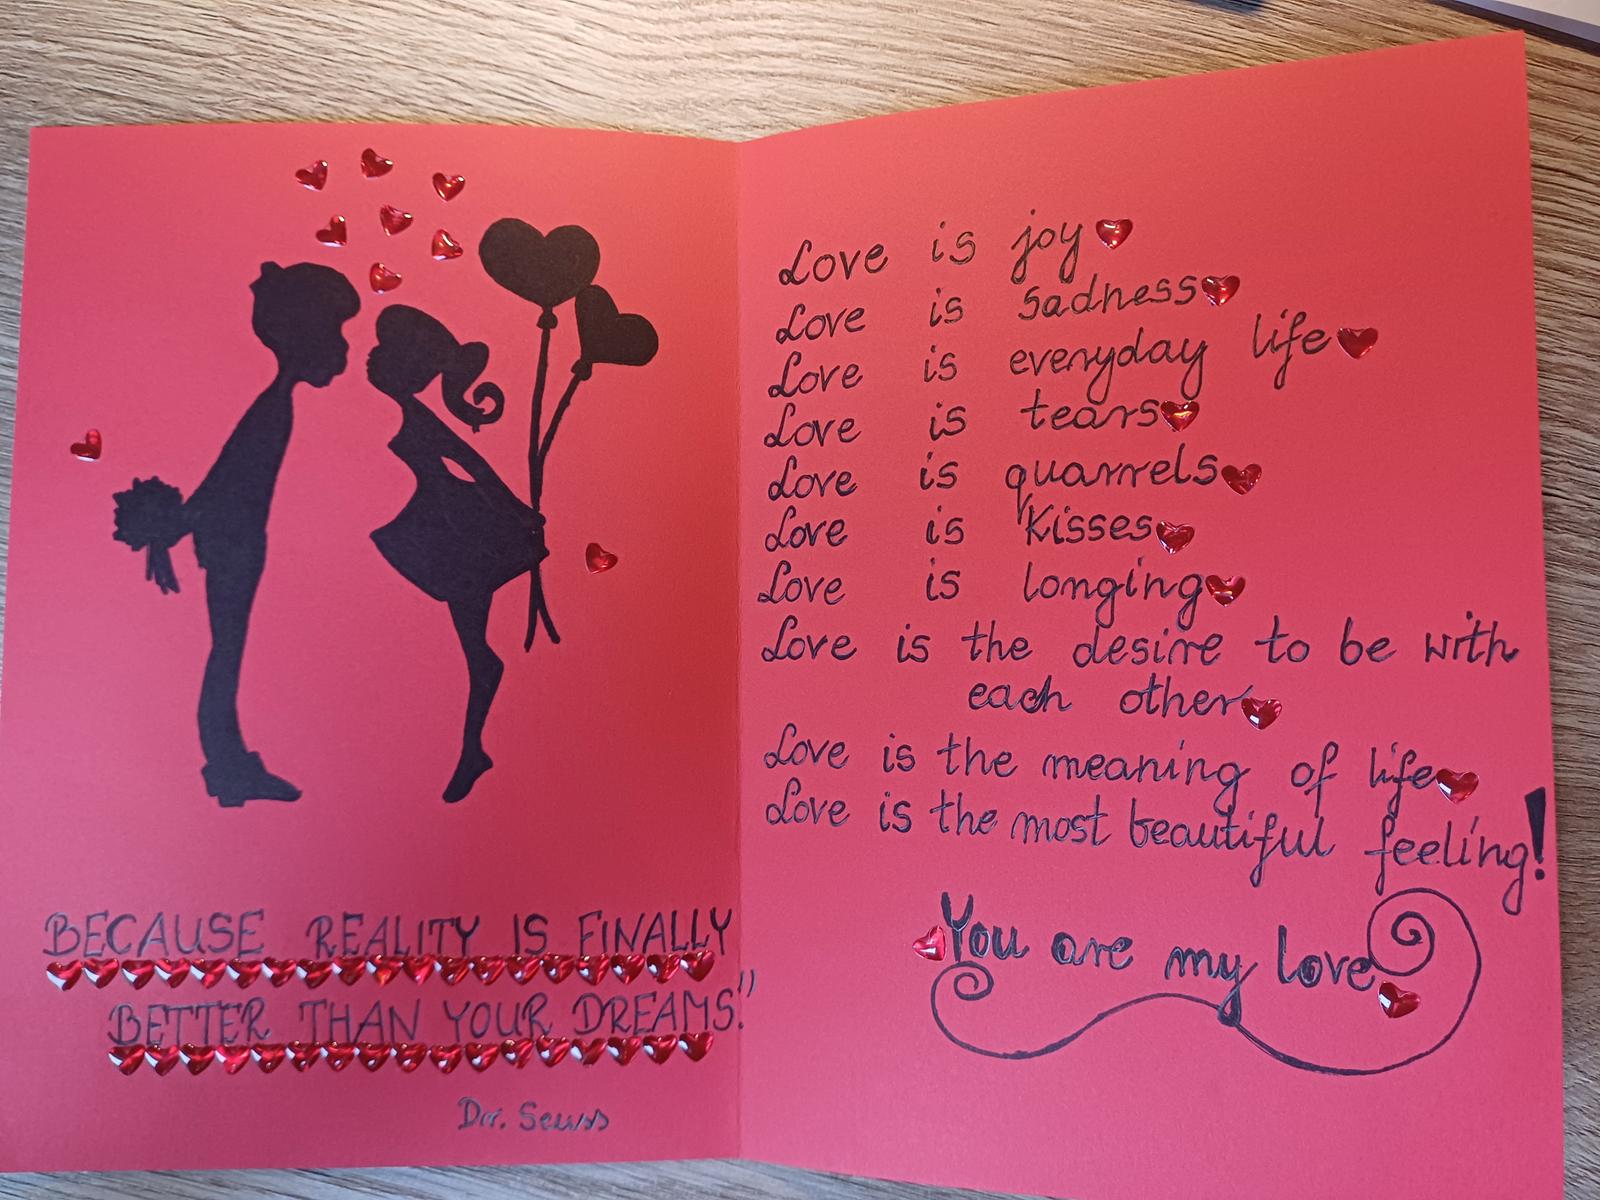 BECAUSE REALITY IS FINALLY
BETTER THAN YOUR DREAMS."
Dr. Seuss
Love is joy
Love is sadness
Love is everyday life
Love is tears
Love is quarrels
Love is kisses
Love is longing
Love is the desire to be with
each other
Love is the meaning of life
Love is the most beautiful feeling!
You are my love